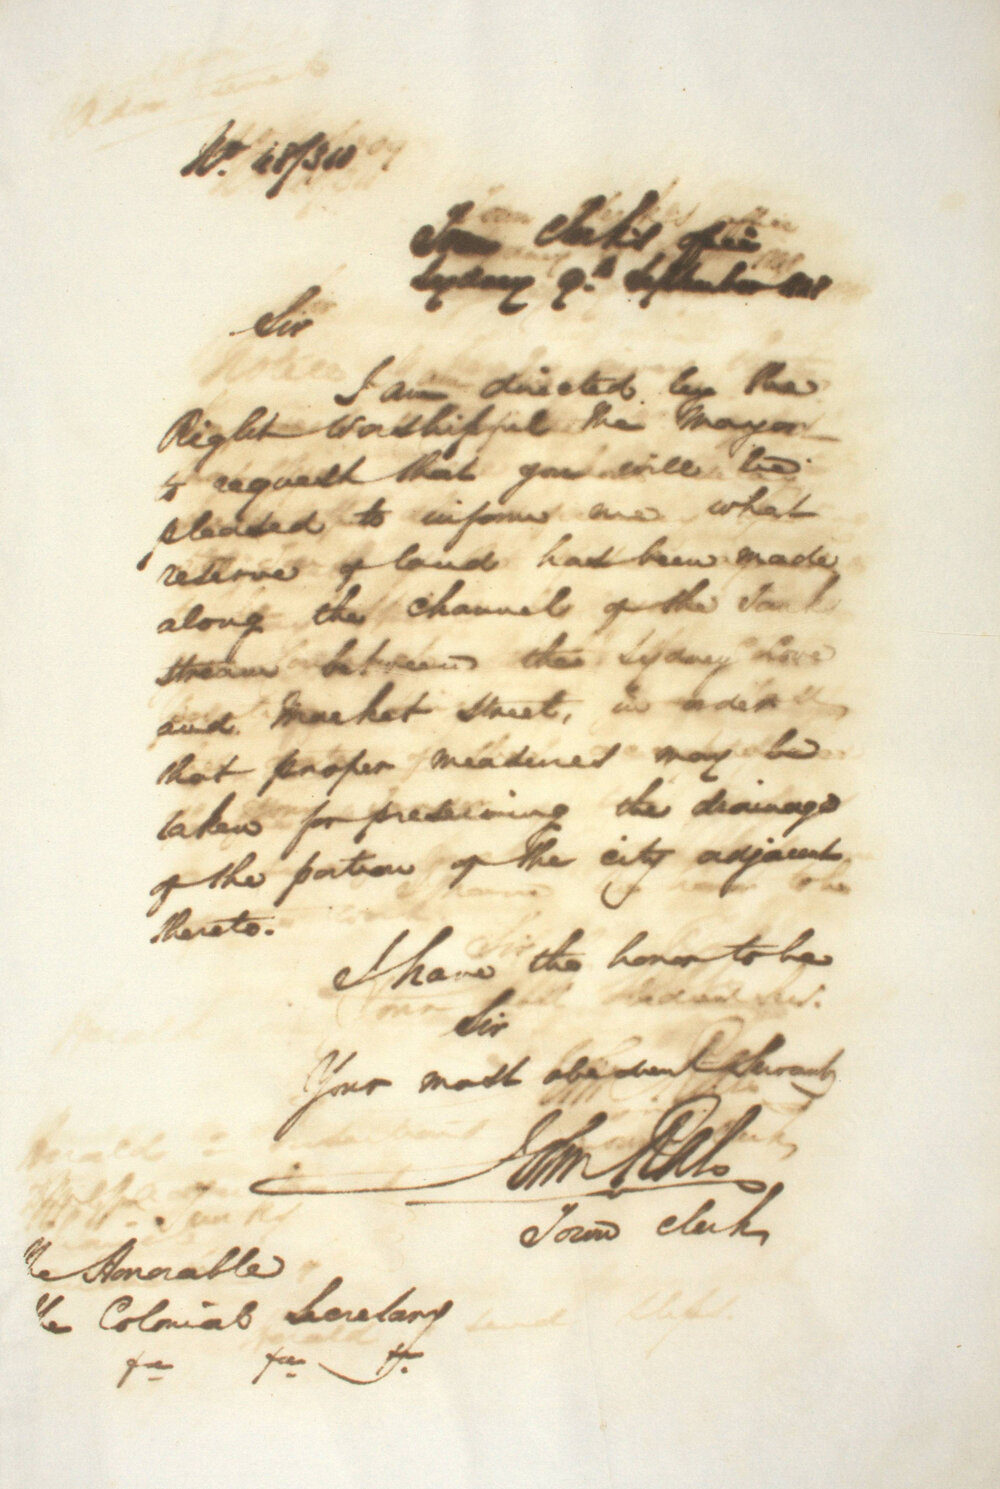 No. 48/310
Town Clerk's Office
Sydney 9th September 1848
Sir
I am directed by the
Right Worshipful the Mayor
to request that you will be
pleased to inform me what
reserve of land has been made
along the channel of the Tank
stream between the Sydney Cove
and Market Street, in order
that proper measures may be
taken for preserving the drainage
of the portion of the city adjacent
thereto.
I have the honor to be
Sir
Your most obedient Servant
John
Town Clerk
The Honorable
The Colonial Secretary
&c &c &c